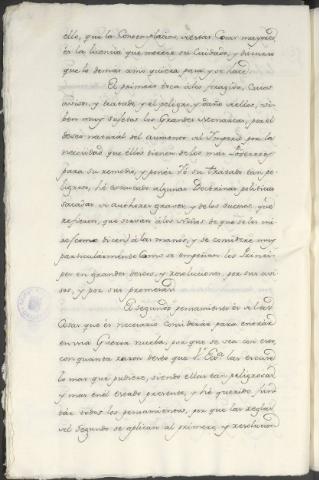 ello, que la Consert placion, viertas Cosas mayores
da la licencia que merece su Cuidado, y dicurso
que lo demas como quiera para, y se hace
El primero toca a los fragidos, Cuios
avisos, y tratados y el peligro, y daño dellos, vi-
ben muy sujetos los Grandes Monarcas, por el
deseo natural del aumento del Imperio por la
necesidad que ellos tienen de los mas Poderosos
para su remedio, y poner fe su tratado tan pe-
ligroso, he avanzado algunas Doctrinas politicas
sacadas de authores graves, y de los sucesos que
refieren, que sirvan a los niños de que se les mi-
re (como dicen) a las manos, y se considere muy
particularmente Como se empeñan los Princi-
pes en grandes deseos, y resoluciones, por sus avi-
sos, y por sus promesas
El segundo pensamiento es de las
Cosas que es necesario Considerar para entrar
en una Guerra nueba, por que se vea con esto,
con quanta razon desto que V. Exa. las escusa
lo mas que pudiere, siendo ellas tan peligrosas
y mas en el estado presente, y hé querido jun-
tar todos los pensamientos, por que las reglas
del segundo se aplican al primero, y resolucion